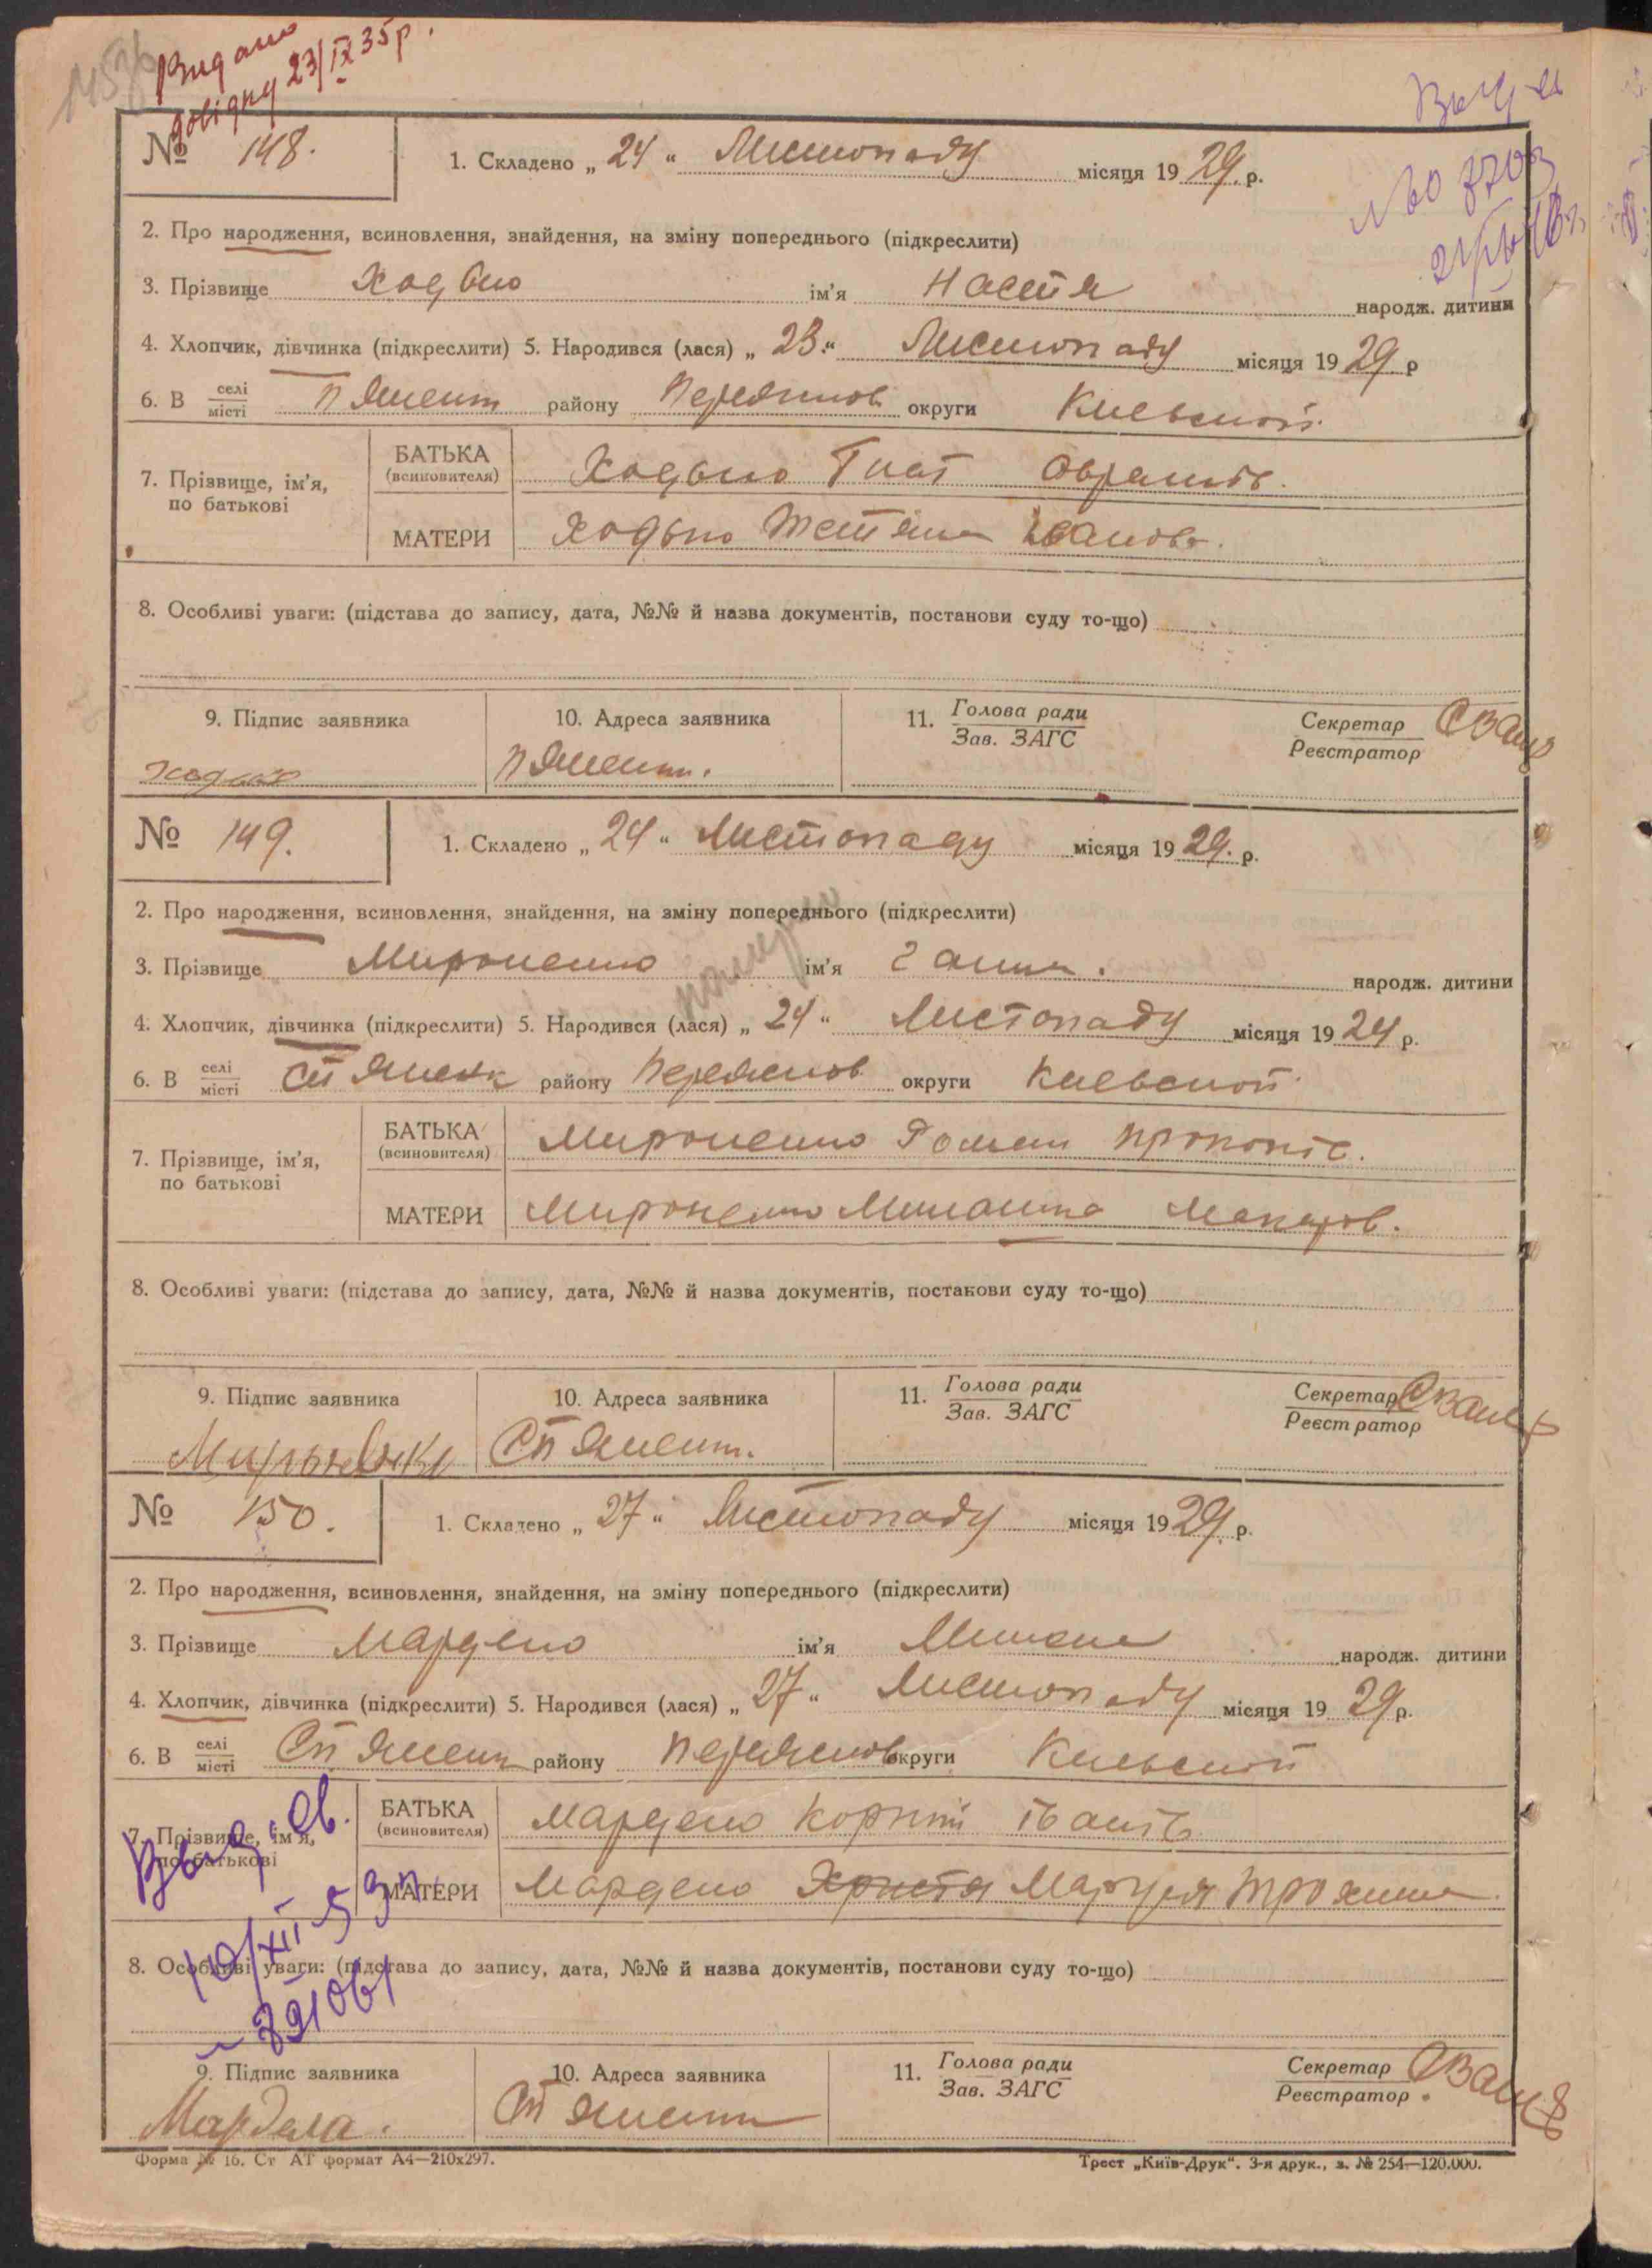 Видано
довідку 23/IX 35р.
№ 148.
1. Складено „ 24 “ Листопаду місяця 19 29. р.
2. Про народження, всиновлення, знайдення, на зміну попереднього (підкреслити)
3. Прізвище Ходько ім'я Настя народж. дитини
4. Хлопчик, дівчинка (підкреслити) 5. Народився (лася) „ 23 “ Листопаду місяця 19 29 р
6. В селі/місті району Переяслов округи Киевской
7. Прізвище, ім'я, по батькові
БАТЬКА (всиновителя) Ходько Гнат
МАТЕРИ Ходько Иванов.
8. Особливі уваги: (підстава до запису, дата, №№ й назва документів, постанови суду то-що)
9. Підпис заявника 10. Адреса заявника 11. Голова ради/Зав. ЗАГС Секретар/Реєстратор
Ходько
№ 149.
1. Складено „ 24 “ Листопаду місяця 19 29. р.
2. Про народження, всиновлення, знайдення, на зміну попереднього (підкреслити)
3. Прізвище Мироненко ім'я Ганна. народж. дитини
4. Хлопчик, дівчинка (підкреслити) 5. Народився (лася) „ 24 “ Листопаду місяця 19 24 р.
6. В селі/місті району Переяслов округи Киевской
7. Прізвище, ім'я, по батькові
БАТЬКА (всиновителя) Мироненко Роман Прокопів.
МАТЕРИ Мироненко Макаров.
8. Особливі уваги: (підстава до запису, дата, №№ й назва документів, постанови суду то-що)
9. Підпис заявника 10. Адреса заявника 11. Голова ради/Зав. ЗАГС Секретар/Реєстратор
№ 150.
1. Складено „ 27 “ Листопаду місяця 19 29 р.
2. Про народження, всиновлення, знайдення, на зміну попереднього (підкреслити)
3. Прізвище ім'я народж. дитини
4. Хлопчик, дівчинка (підкреслити) 5. Народився (лася) „ 27 “ Листопаду місяця 19 29 р.
6. В селі/місті району Переяслов округи Киевской
7. Прізвище, ім'я, по батькові
БАТЬКА (всиновителя) Корній Іванів
МАТЕРИ Христя
8. Особливі уваги: (підстава до запису, дата, №№ й назва документів, постанови суду то-що)
9. Підпис заявника 10. Адреса заявника 11. Голова ради/Зав. ЗАГС Секретар/Реєстратор
Форма № 16. Ст АТ формат А4—210х297. Трест „Київ-Друк“. 3-я друк., з. № 254—120.000.